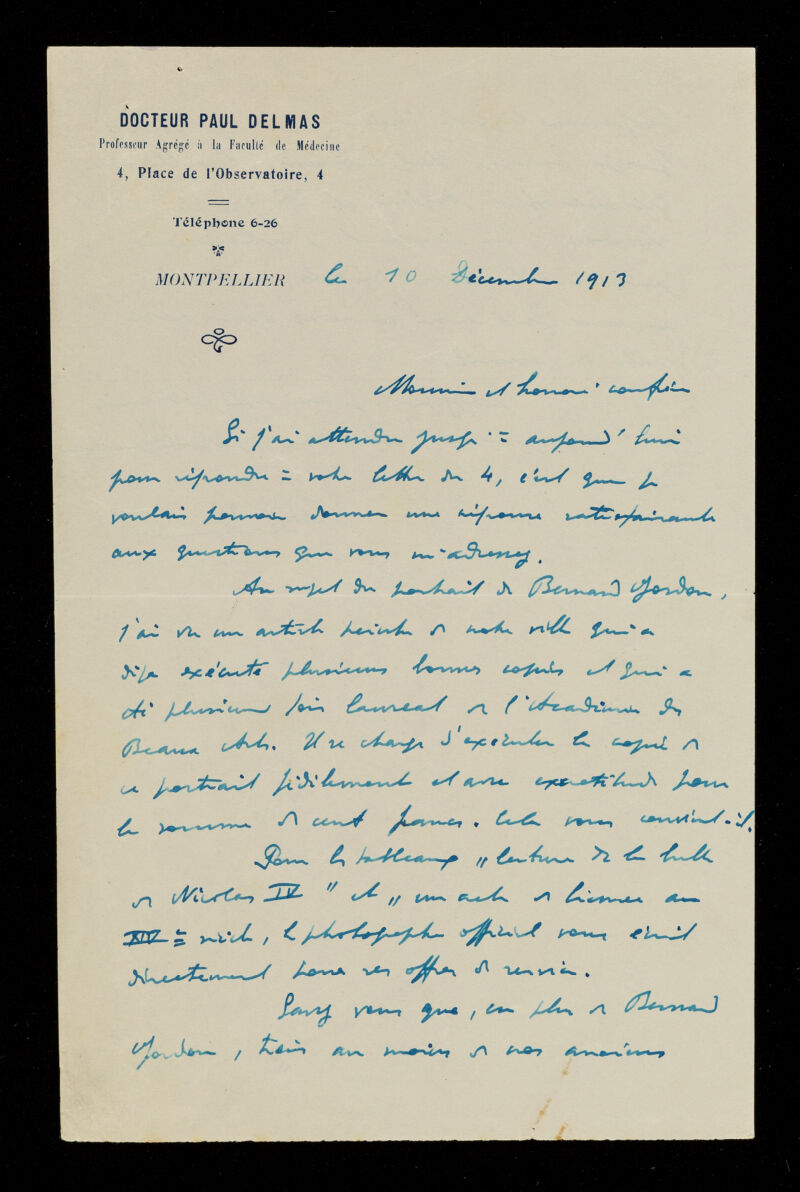 DOCTEUR PAUL DELMAS
Professeur Agrégé à la Faculté de Médecine
4, Place de l'Observatoire, 4
Téléphone 6-26
MONTPELLIER le 10 Décembre 1913
Monsieur et honoré confrère
Si j'ai attendu jusqu'à aujourd'hui
pour répondre à votre lettre du 4, c'est que je
voulais pouvoir donner une réponse satisfaisante
aux questions que vous m'adressez.
Au sujet du portrait de Bernard Gordon,
j'ai vu un artiste peintre de notre ville qui a
déjà exécuté plusieurs bonnes copies et qui a
été plusieurs fois lauréat de l'Académie des
Beaux Arts. Il se charge d'exécuter la copie de
ce portrait fidèlement et avec exactitude pour
la somme de cent francs. Cela vous convient-il.
Pour les tableaux „ lecture de la bulle
de Nicolas IV " et „ un acte de licence au
XIVe siècle, le photographe officiel vous écrit
directement pour ses offres de service.
Savez vous que, en plus de Bernard
Gordon, trois au moins de nos anciens